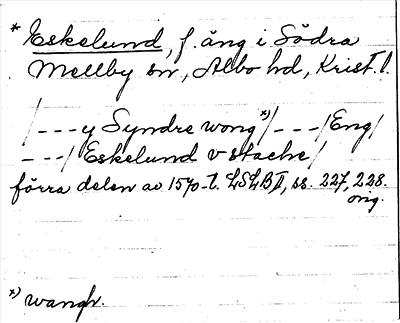 * Eskelund, f. äng i Södra
Mellby sn, Albo hd, Krist. l.
/---y Syndre wong *)/---/Eng/
---/Eskelund v stache/
förra delen av 1570-t. LSLB II, ss. 227, 228.
orig.
*) wangh.